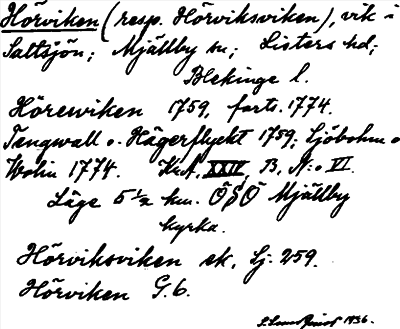 Hörviken (resp. Hörviksviken), vik i
Saltsjön; Mjällby sn; Listers hd;
Blekinge l.
Hörewiken 1759, forts. 1774.
Tengwall o. Hägerflyckt 1759; Ljöbohm o
Wolin 1774. Kr.A. XXIV, B, N:o VI.
Läge 5 ½ km. ÖSÖ Mjällby
kyrka.
Hörviksviken ek. Lj. 259.
Hörviken G.6.
1936.